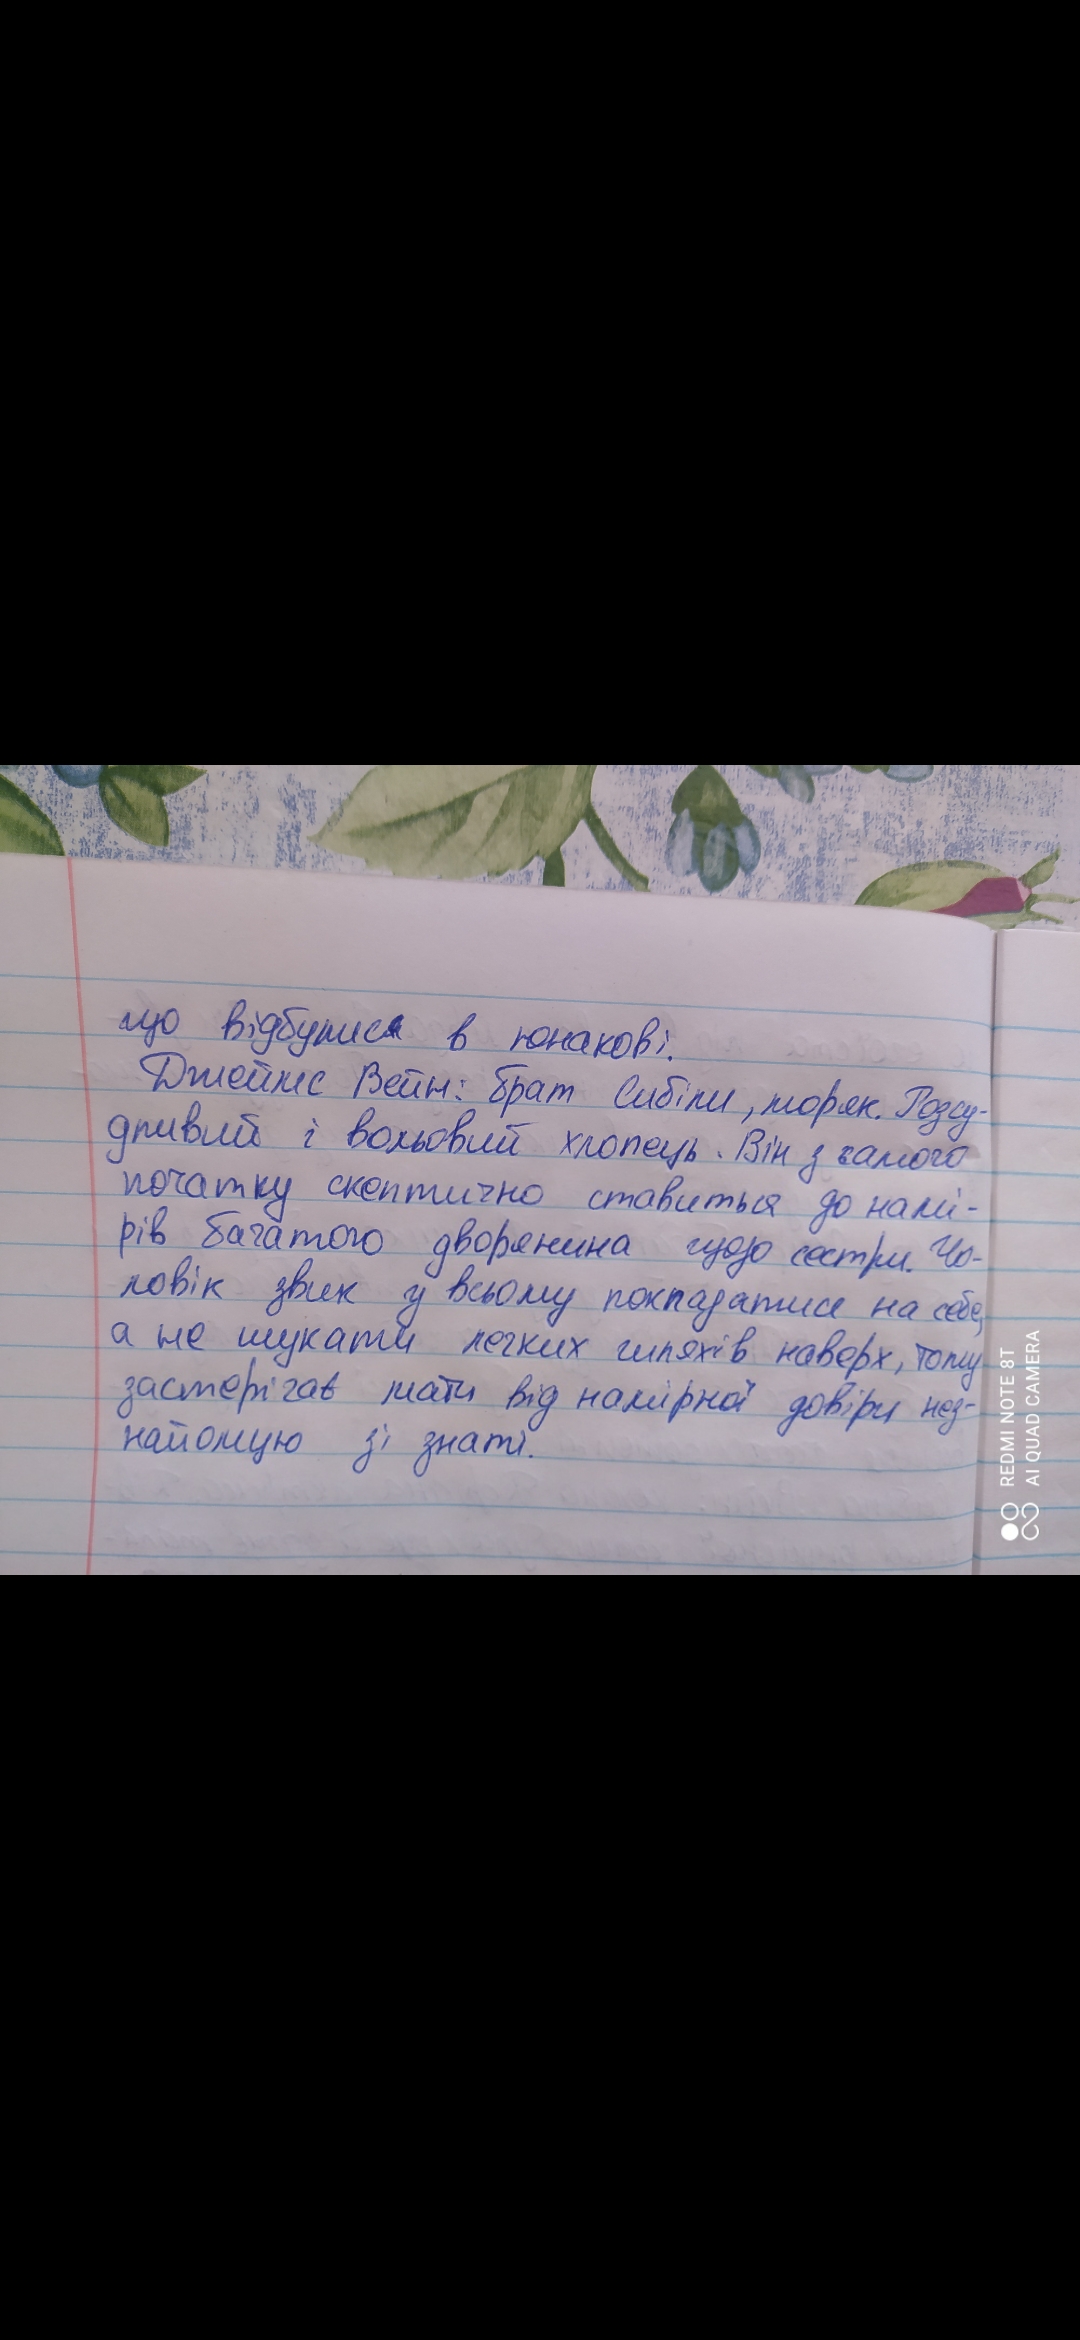 що відбулися в юнакові.
Джеймс Вейн: брат Сибіли, моряк. Розсу-
дливий і вольовий хлопець. Він з самого
початку скептично ставиться до намі-
рів багатого дворянина щодо сестри. Чо-
ловік звик у всьому покладатися на себе,
а не шукати легких шляхів наверх, тому
застерігав мати від намірної довіри нез-
найомцю зі знаті.
REDMI NOTE 8T
AI QUAD CAMERA